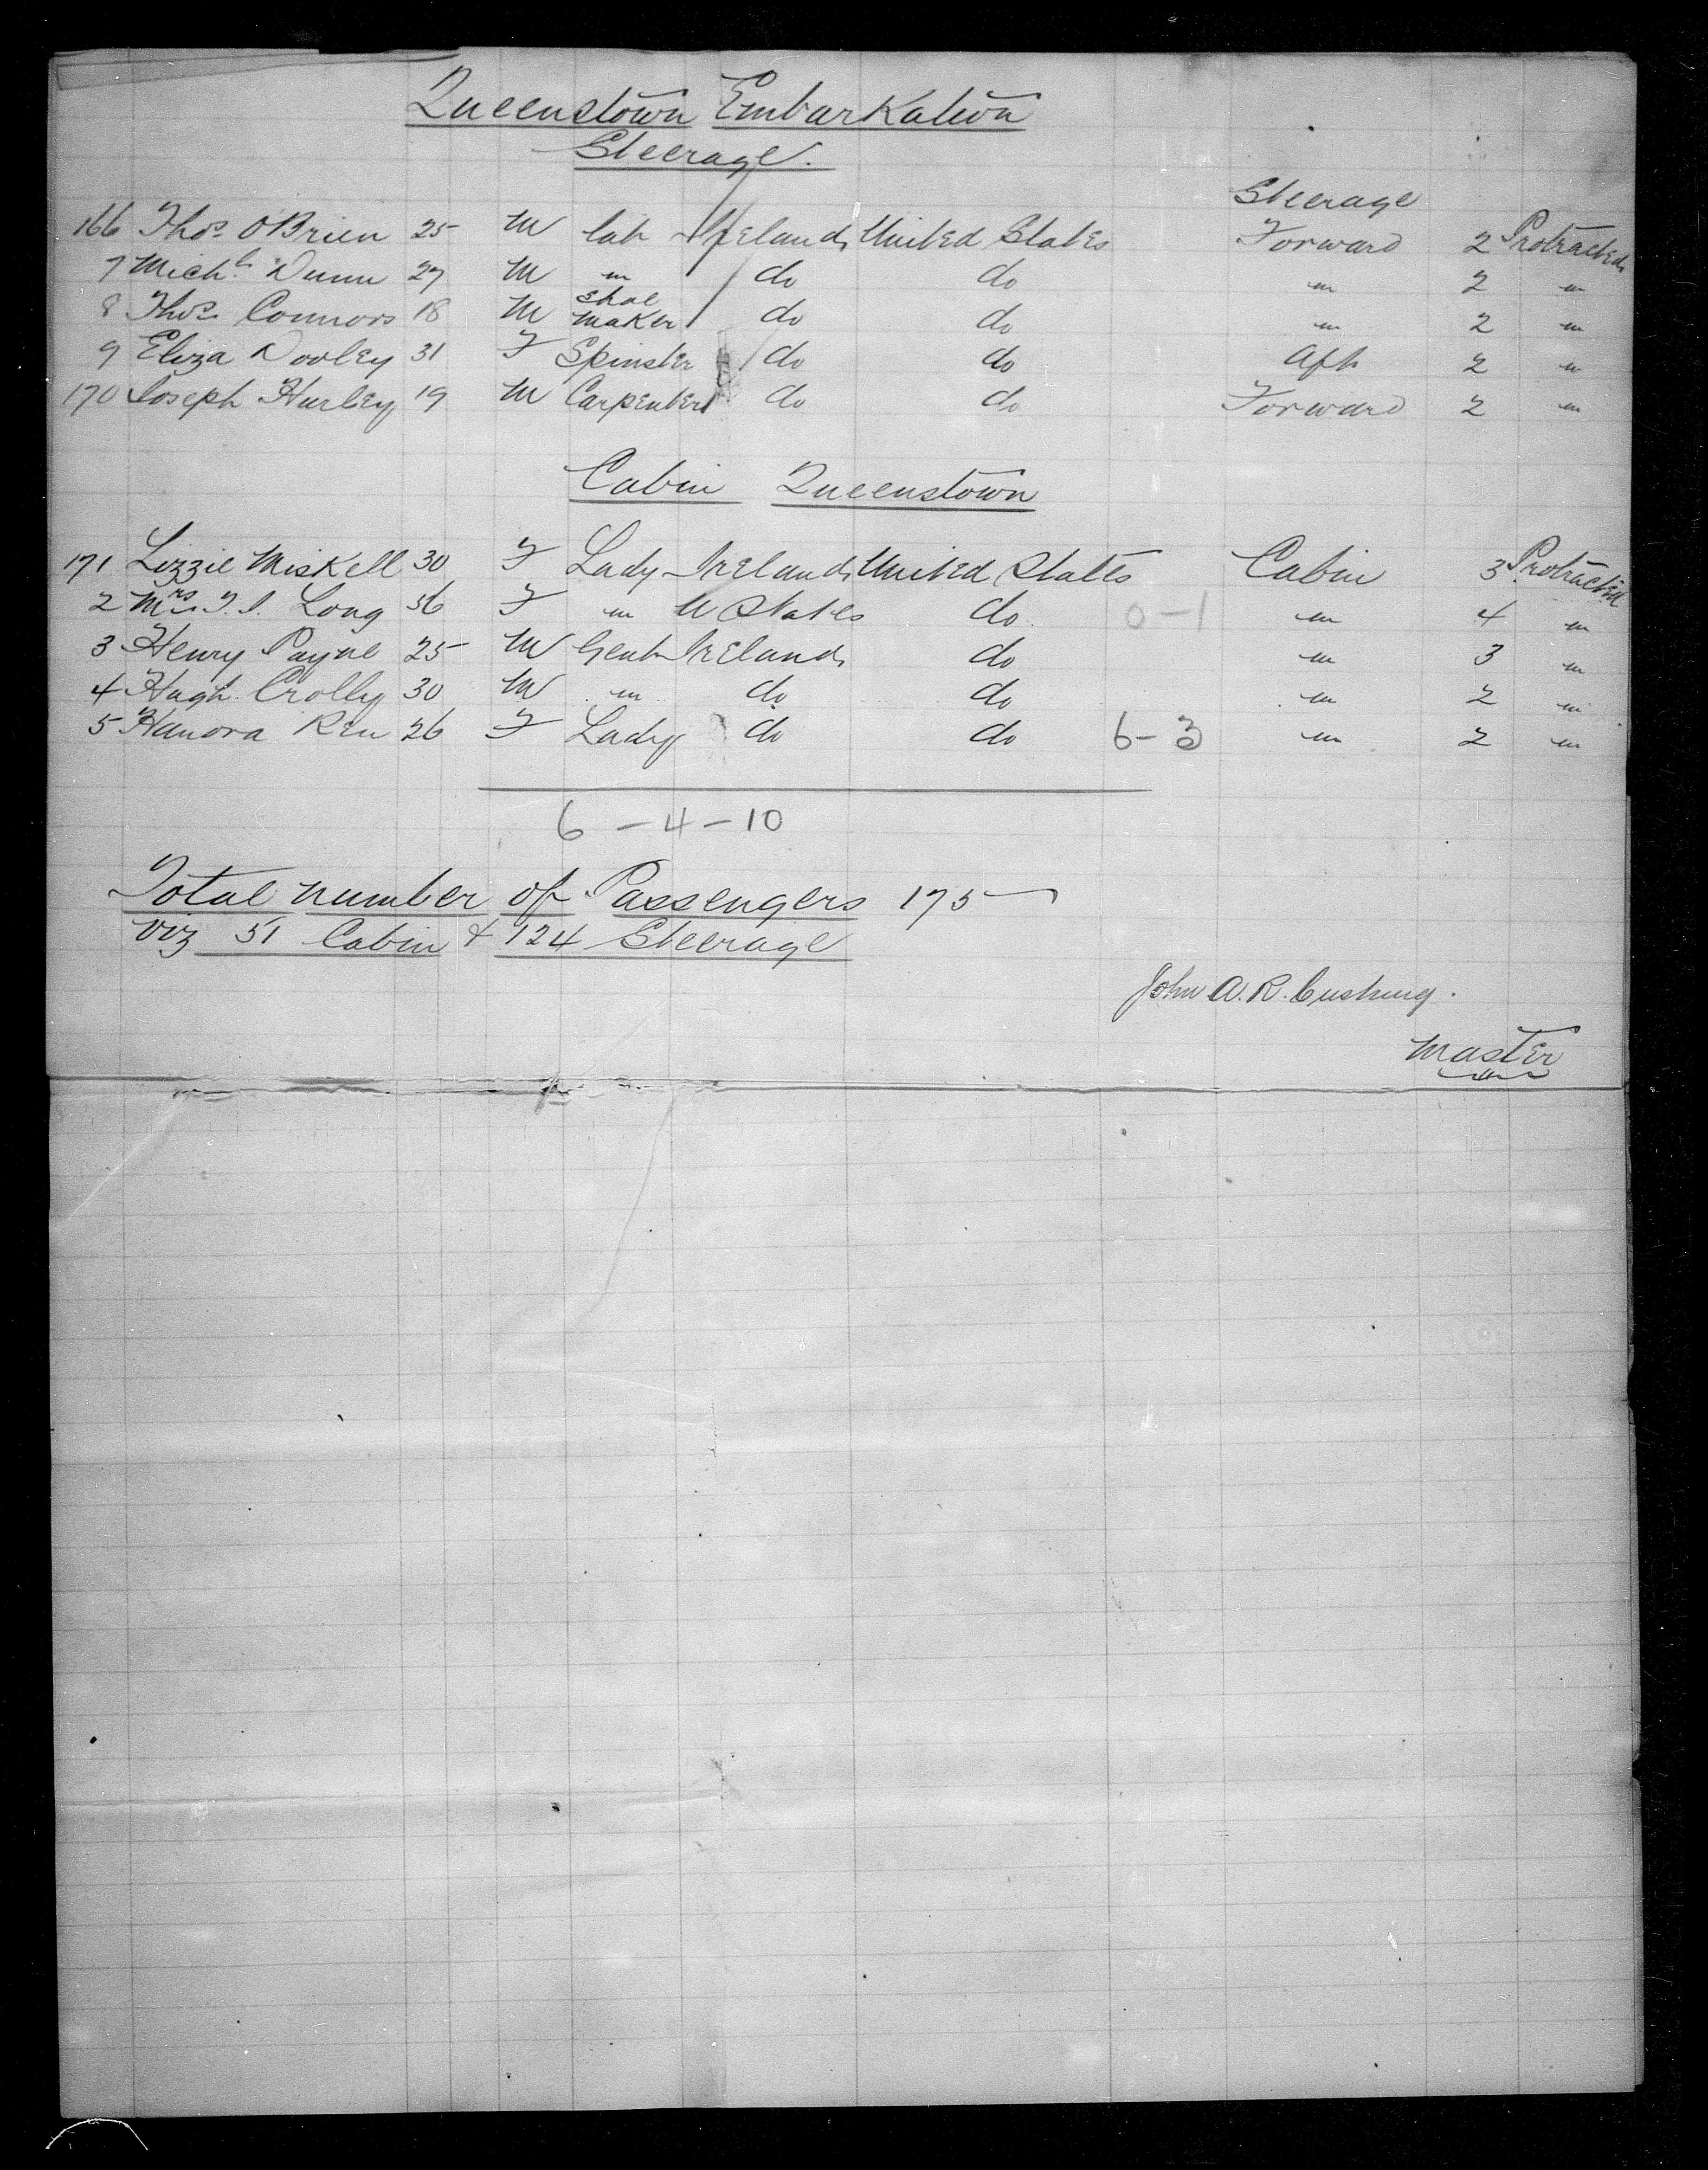 Queenstown Embarkation
Steerage.
Steerage
166 Thos OBrien 25 M lab Ireland United States Forward 2 Protracted
7 Michl Dunn 27 M " do do " 2 "
8 Thos Connors 18 M Shoe maker do do " 2 "
9 Eliza Dooley 31 F Spinster do do Aft 2 "
170 Joseph Hurley 19 M Carpenter do do Forward 2 "
Cabin Queenstown
171 Lizzie Miskell 30 F Lady Ireland United States Cabin 3 Protracted
2 Mrs Long 56 F " U States do 0-1 " 4 "
3 Henry Payne 25 M Gent Ireland do " 3 "
4 Hugh Crolly 30 M " do do " 2 "
5 Hanora Ren 26 F Lady do do 6-3 " 2 "
6-4-10
Total number of Passengers 175
viz 51 Cabin & 124 Steerage
John A. R. Cushing.
Master